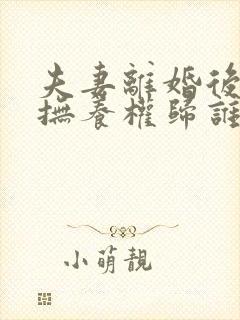 夫妻離婚後
撫養權歸誰
小萌靚